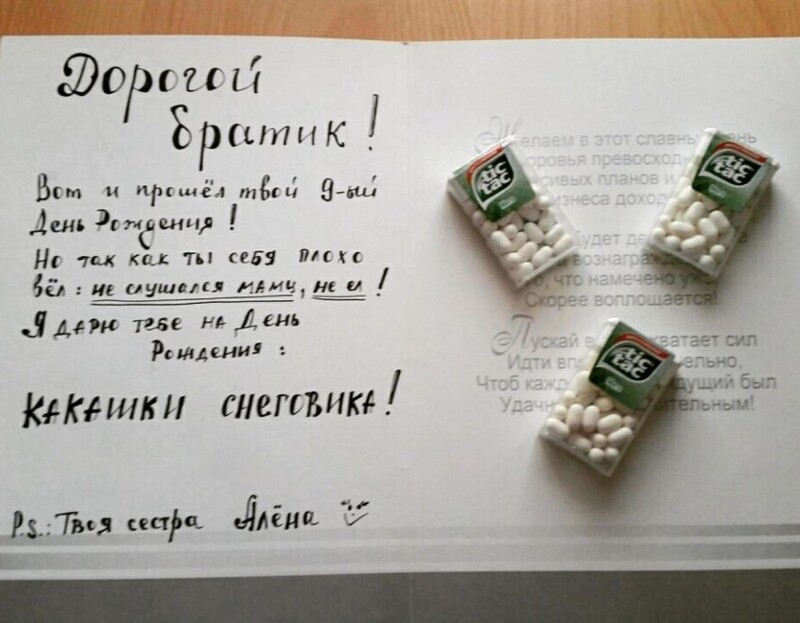 Дорогой
братик!
Вот и прошёл твой 9-ый
День Рождения!
Но так как ты себя плохо
вёл: не слушался маму, не ел!
Я дарю тебе на День
Рождения:
КАКАШКИ СНЕГОВИКА!
P.S.: Твоя сестра Алёна
Желаем в этот славный день
превосход
сивых планов и
бизнеса
будет
вознаграж
что намечено
Скорее воплощается!
Пускай хватает сил
Идти
Чтоб кажд дущий был
Удач ительным!
tic
tac
tic
tac
tic
tac